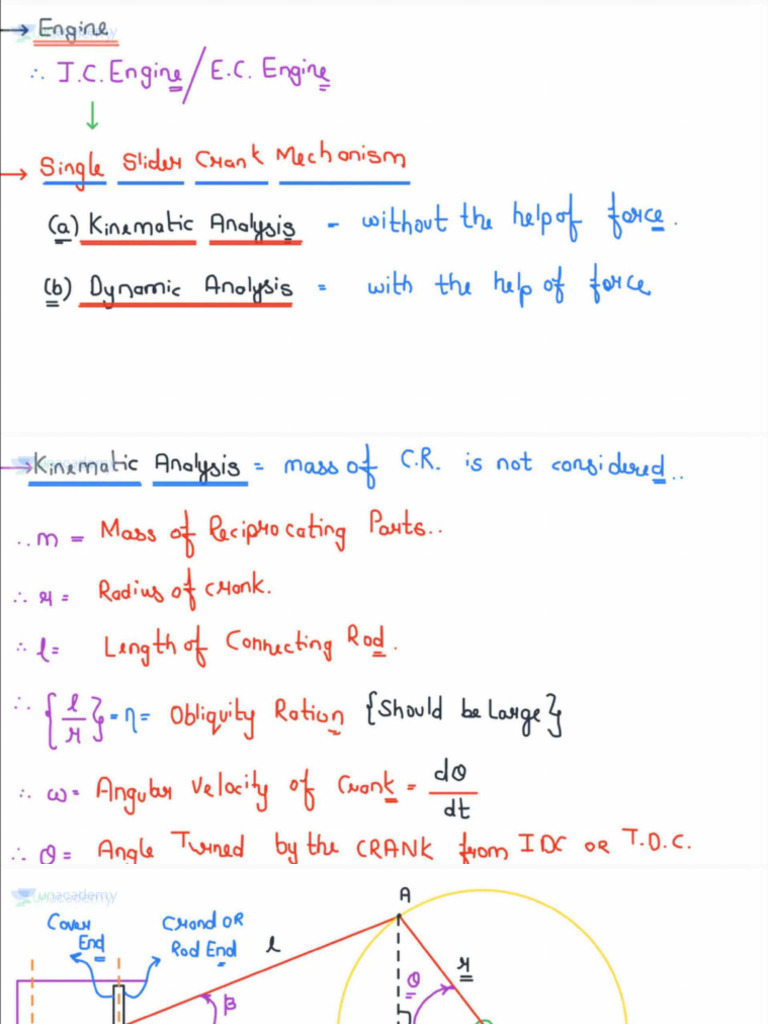 → Engine
∴ I.C. Engine / E.C. Engine
↓
→ Single Slider Crank Mechanism
(a) Kinematic Analysis - without the help of force.
(b) Dynamic Analysis = with the help of force
→ Kinematic Analysis = mass of C.R. is not considered..
∴ m = Mass of Reciprocating Parts..
∴ r = Radius of crank.
∴ l = Length of Connecting Rod.
∴ {l/r} = η = Obliquity Ration {Should be Large}
∴ ω = Angular Velocity of Crank = dθ/dt
∴ θ = Angle Turned by the CRANK from IDC OR T.D.C.
unacademy
A
Cover End
Crand OR Rod End
l
r
θ
β